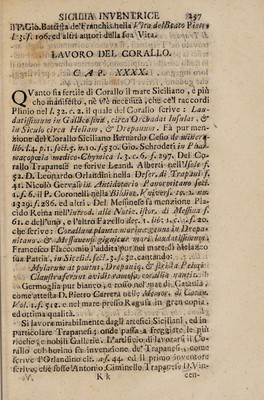 SICILIA INVENTRICE 257
il P. Gio. Battista de' Franchi nella Vita del Beato Pietro
l. 3. f. 106. ed altri autori della sua Vita.
LAVORO DEL CORALLO.
C A P. XXXX.
QVanto sia fertile di Corallo il mare Siciliano, è più
che manifesto, nè v'è necessità, che cel raccordi
Plinio nel l. 32. c. 2. il quale del Corallo scrive : Lau-
datissimum in Gallico sinu, circa Orchadas Insulas, &
in Siculo circa Heliam, & Drepanum. Fà pur men-
zione del Corallo Siciliano Bernardo Cesio de minera-
lib. l. 4. p. 1. sect. 5. n. 10. f. 530. Gio. Schroderi in Phar-
macopœia medico-Chymica l. 3. c. 6. f. 297. Del Co-
rallo Trapanese ne scrive Leand. Alberti nell'Isole f.
52. D. Leonardo Orlandini nella Descr. di Trapani f.
41. Nicolò Gervasi in Antidotario Panormitano sect.
4. f. 6. il P. Coronelli nella Bibliot. Univers. to. 2. nu.
1329. f. 286. ed altri. Del Messinese fà menzione Pla-
cido Reina nell'introd. alle Notiz. istor. di Messina f.
61. e dell'uno, e l'altro Fazello dec. 1. lib. 1. c. 4. f. 20.
che scrive: Corallum planta marino genus in Drepa-
nitano, & Messanensi gignitur mari laudatissimum.
Francesco Flaccomio l'addita pur nel mare di Melazzo
sua Patria, in Sicelid. sect. 3. f. 32. cantando:
Mylarum at pontus, Drepaniq; & ferilia Pelori
Claustra ferunt
Germoglia pur bianco, e rosso nel mar di Catania
come attesta D. Pietro Carrera nelle Memor. di Catan.
Vol. 1. f. 512. e nel mare presso Ragusa in gran copia,
ed ottima qualità.
Si lavora mirabilmente dagli artefici Siciliani, ed in
particolare Trapanesi; onde passa a freggiare le più
ricche, e nobili Gallerie. L'artificio di lavorare il Co-
rallo col borino fù invenzione de' Trapanesi, come
scrive l'Orlandini cit. a f. 44. ed il primo inventore
scrive, che fosse Antonio Ciminello Trapanese D. Vin-
V. K k cen-